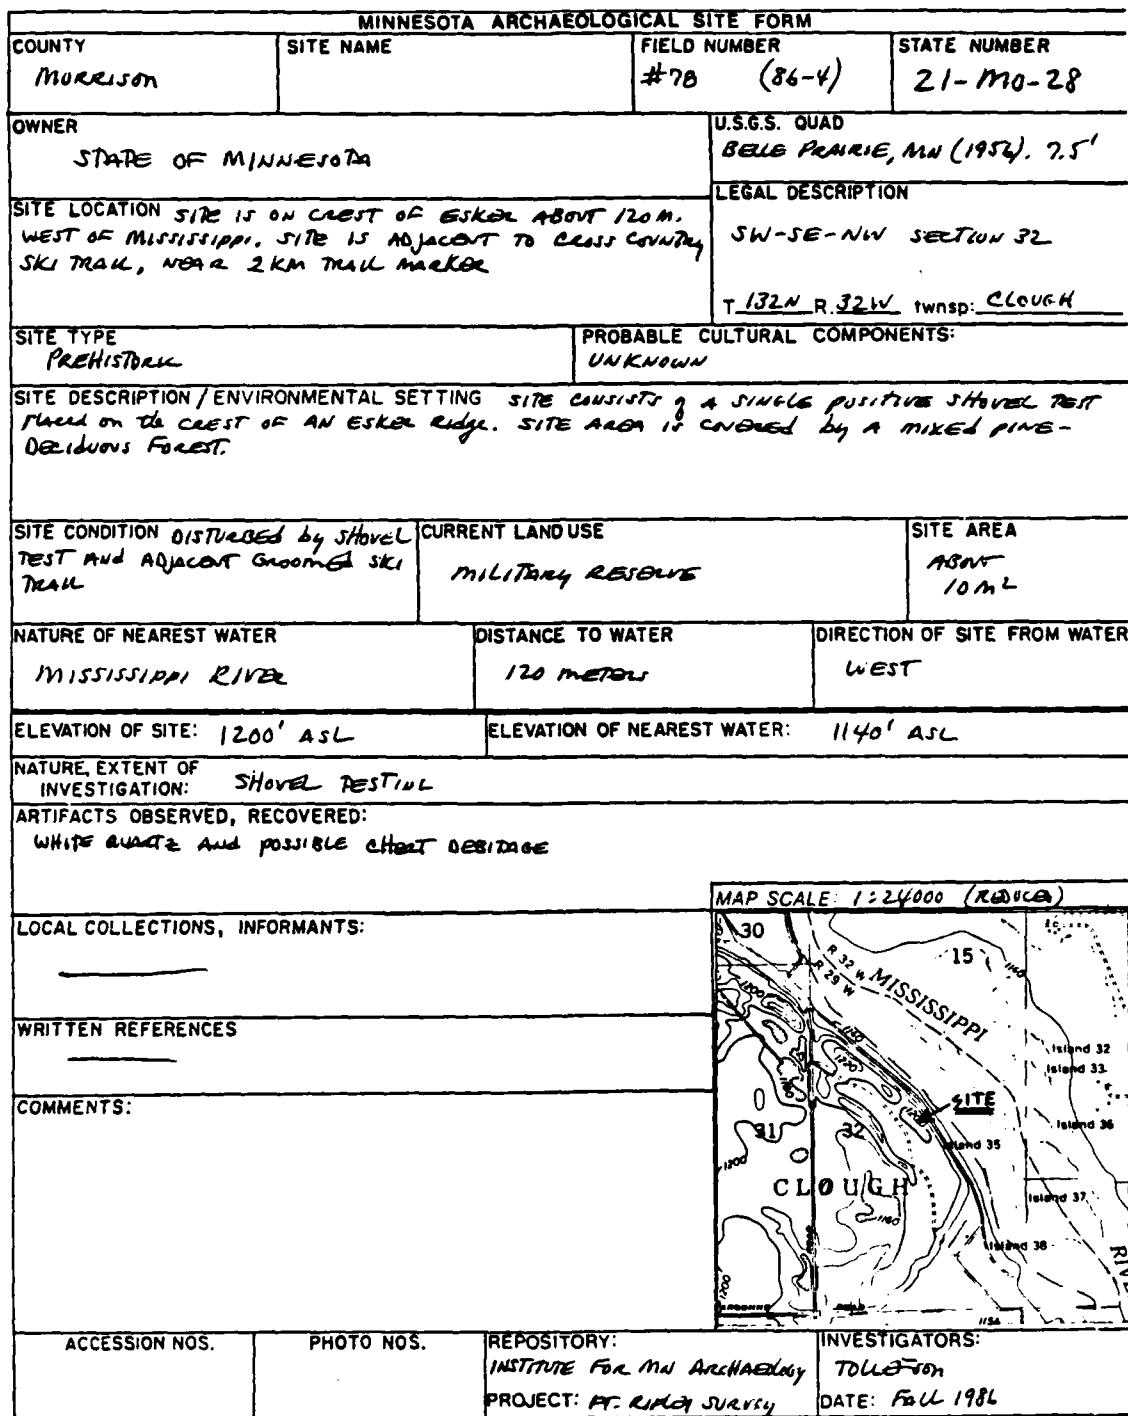 MINNESOTA ARCHAEOLOGICAL SITE FORM
COUNTY
Morrison
SITE NAME
FIELD NUMBER
#78 (86-4)
STATE NUMBER
21-MO-28
OWNER
STATE OF MINNESOTA
U.S.G.S. QUAD
BELLE PRAIRIE, MN (1956). 7.5'
SITE LOCATION SITE IS ON CREST OF ESKER ABOUT 120 M.
WEST OF MISSISSIPPI. SITE IS ADJACENT TO CROSS COUNTRY
SKI TRAIL, NEAR 2 KM TRAIL MARKER
LEGAL DESCRIPTION
SW-SE-NW SECTION 32
T. 132N R. 32W twnsp: CLOUGH
SITE TYPE
PREHISTORIC
PROBABLE CULTURAL COMPONENTS:
UNKNOWN
SITE DESCRIPTION / ENVIRONMENTAL SETTING SITE CONSISTS of A SINGLE POSITIVE SHOVEL TEST
Placed on the CREST OF AN ESKER Ridge. SITE AREA IS COVERED by A MIXED PINE-
DECIDUOUS FOREST.
SITE CONDITION DISTURBED by SHOVEL
TEST And ADJACENT GROOMED SKI
TRAIL
CURRENT LAND USE
MILITARY RESERVE
SITE AREA
ABOUT
10 m2
NATURE OF NEAREST WATER
MISSISSIPPI RIVER
DISTANCE TO WATER
120 METERS
DIRECTION OF SITE FROM WATER
WEST
ELEVATION OF SITE: 1200' ASL
ELEVATION OF NEAREST WATER: 1140' ASL
NATURE, EXTENT OF
INVESTIGATION: SHOVEL TESTING
ARTIFACTS OBSERVED, RECOVERED:
WHITE QUARTZ And POSSIBLE CHERT DEBITAGE
MAP SCALE: 1:24000 (REDUCED)
LOCAL COLLECTIONS, INFORMANTS:
WRITTEN REFERENCES
COMMENTS:
30
15
1160
R 32 W
R 29 W
MISSISSIPPI
1200
1150
1220
Island 32
Island 33
SITE
Island 36
31
32
Island 35
1200
CLOUGH
Island 37
1160
Island 38
1200
1154
ACCESSION NOS.
PHOTO NOS.
REPOSITORY:
INSTITUTE FOR MN ARCHAEOLOGY
PROJECT: FT. RIPLEY SURVEY
INVESTIGATORS:
TOLLEFSON
DATE: FALL 1986